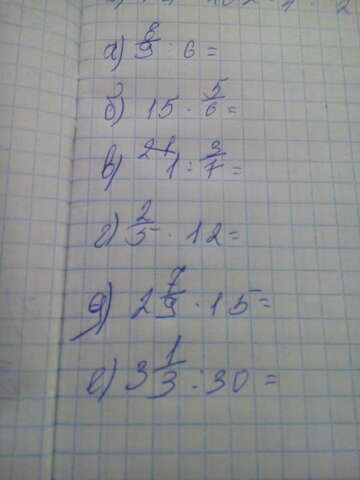 а) 8/9 : 6 =
б) 15 · 5/6 =
в) 1 : 3/7 =
г) 2/5 · 12 =
д) 2 7/9 · 15 =
е) 3 1/3 : 30 =